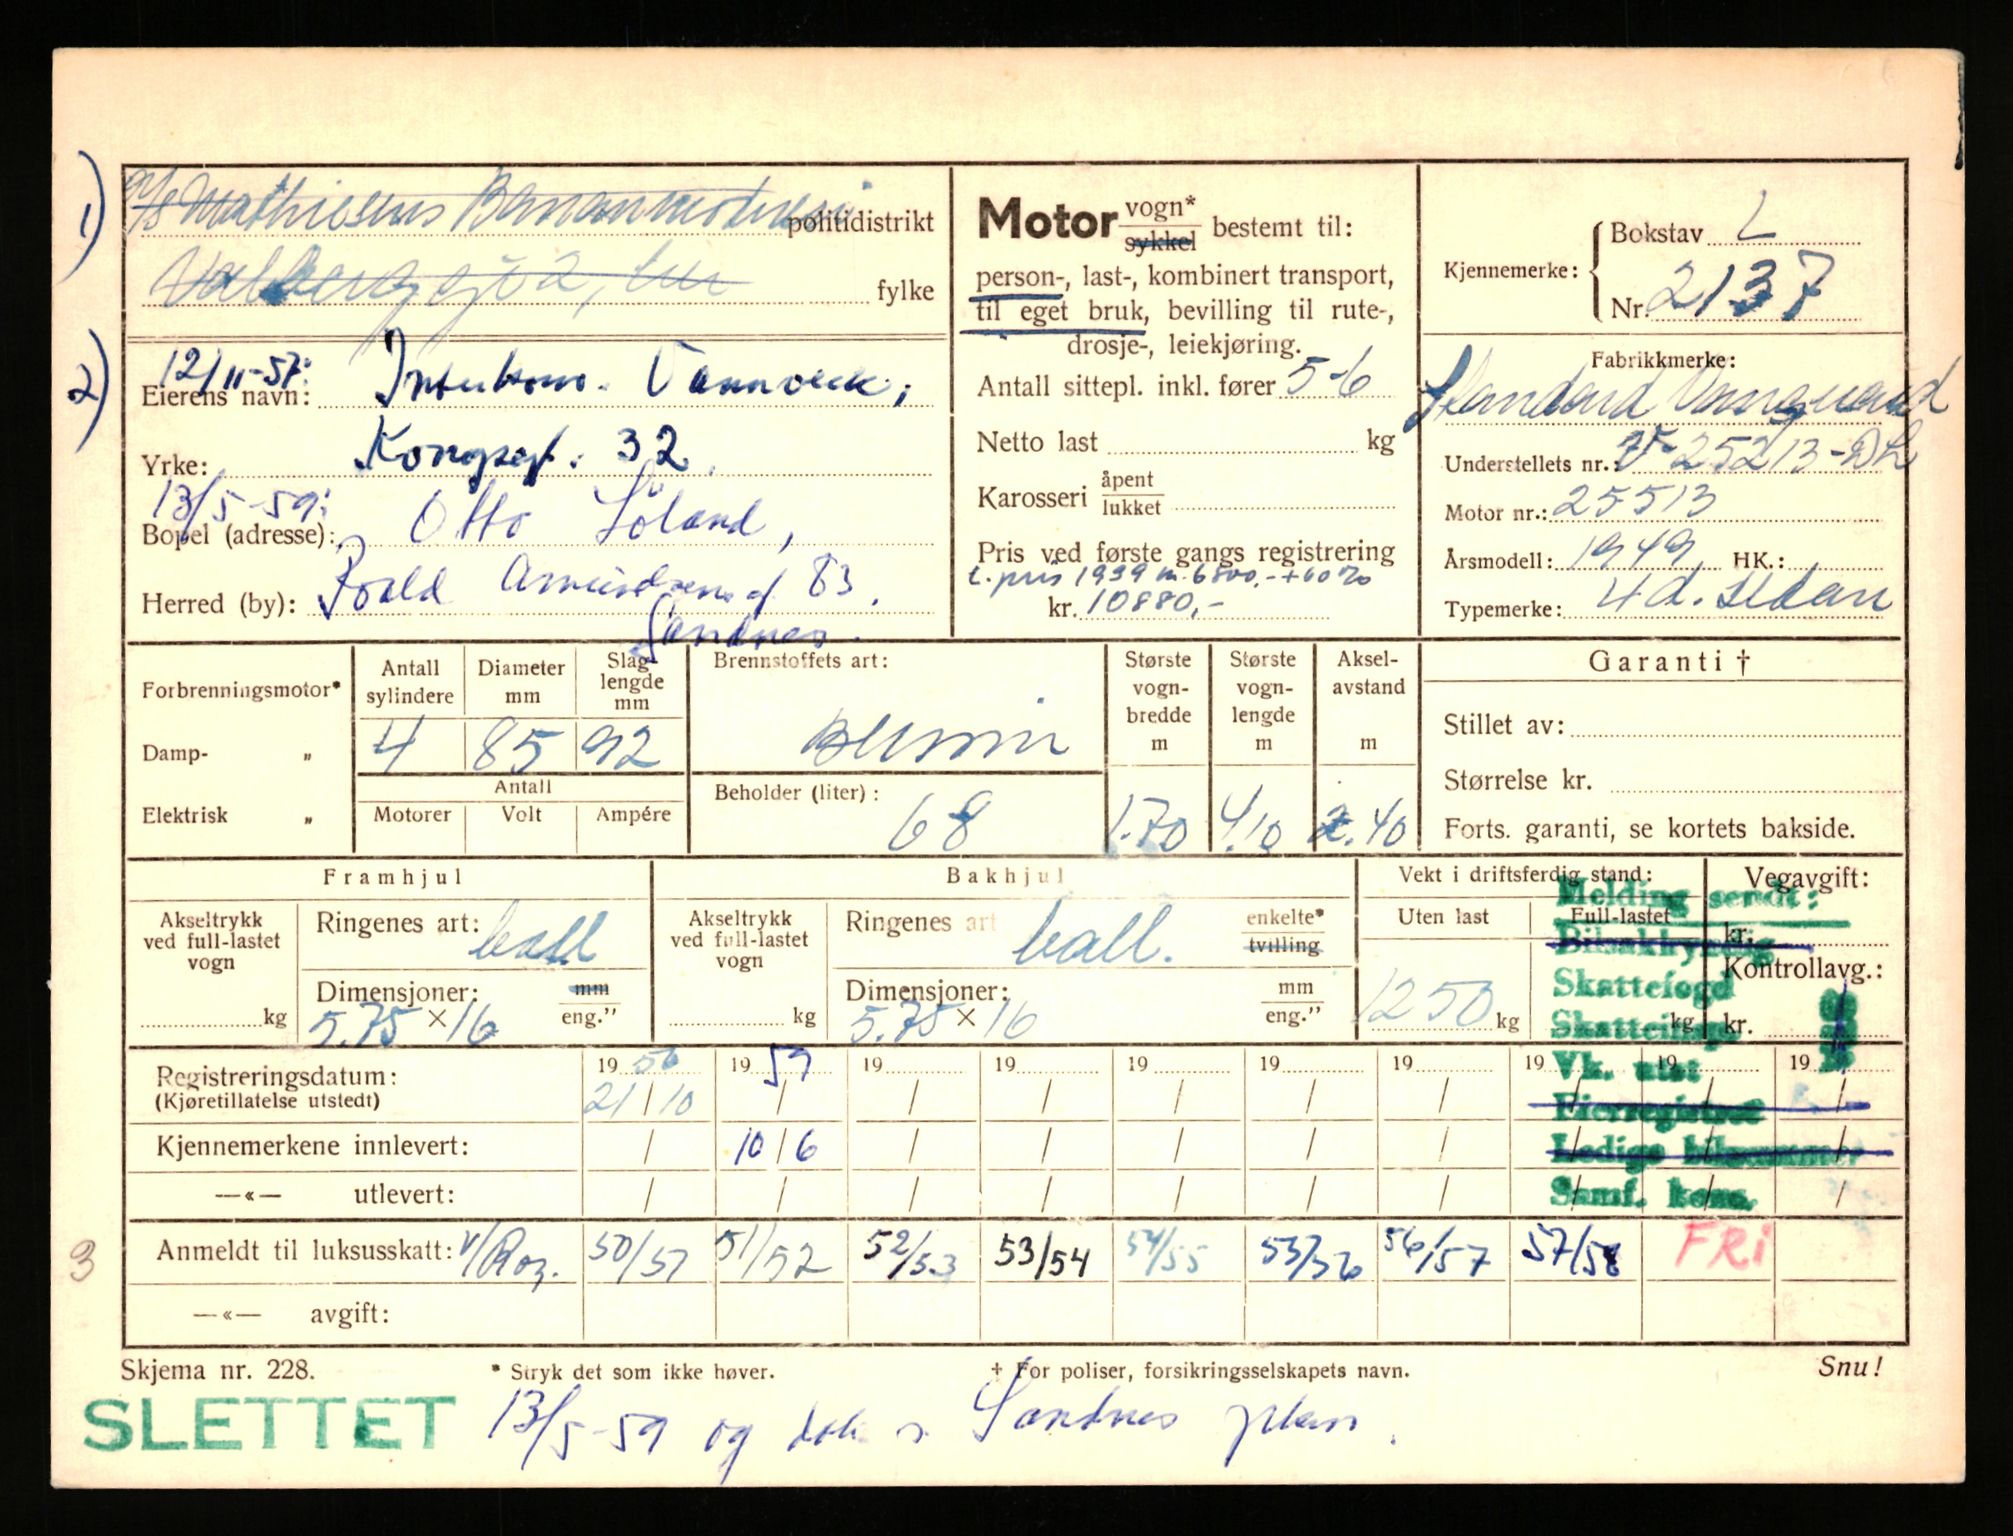 1)
A/S Mathiesens Bananmodneri
politidistrikt
fylke
2)
12/11-57:
Eierens navn: Interkom. Vannverk,
Yrke: Kongsgt. 32.
13/5-59:
Bopel (adresse): Otto Söland,
Herred (by): Roald Amundsens gt 83.
Sandnes.
Motor vogn* sykkel bestemt til:
person-, last-, kombinert transport,
til eget bruk, bevilling til rute-,
drosje-, leiekjøring.
Antall sittepl. inkl. fører 5-6
Netto last kg
Karosseri åpent lukket
Pris ved første gangs registrering
pris 1939 kr. 6800,- +60%
kr. 10880,-
Kjennemerke:
Bokstav L
Nr. 2137
Fabrikkmerke:
Standard Vanguard
Understellets nr.: V-25213-DL
Motor nr.: 25513
Årsmodell: 1949 HK.:
Typemerke: 4 d. sedan
Forbrenningsmotor*
Damp- "
Elektrisk "
Antall sylindere
Diameter mm
Slag-lengde mm
4 85 92
Antall
Motorer Volt Ampére
Brennstoffets art:
Bensin
Beholder (liter):
68
Største vogn-bredde m
1.70
Største vogn-lengde m
4.10
Aksel-avstand m
2.40
Garanti †
Stillet av:
Størrelse kr.
Forts. garanti, se kortets bakside.
Framhjul
Akseltrykk ved full-lastet vogn
kg
Ringenes art: ball
Dimensjoner: mm
5.75 × 16 eng."
Bakhjul
Akseltrykk ved full-lastet vogn
kg
Ringenes art ball. enkelte* tvilling
Dimensjoner: mm
5.75 × 16 eng."
Vekt i driftsferdig stand:
Uten last Full-lastet
1250 kg kg
Vegavgift:
kr.
Kontrollavg.:
kr.
Melding sendt:
Skattefogd
Vk. utst
Eierregistret
Ledige bilnummer
Samf. kons.
Registreringsdatum: 19 56 19 59 19 19 19 19 19 19 19 19
(Kjøretillatelse utstedt) 21/10 / / / / / / / / /
Kjennemerkene innlevert: / 10/6 / / / / / / / /
—«— utlevert: / / / / / / / / / /
3
Anmeldt til luksusskatt: 50/51 51/52 52/53 53/54 54/55 55/56 56/57 57/58 FRi
—«— avgift:
Skjema nr. 228.
* Stryk det som ikke høver.
† For poliser, forsikringsselskapets navn.
Snu!
SLETTET
13/5-59 og Sandnes